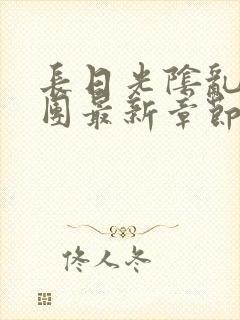 長日光陰亂
團最新章節
佟人冬